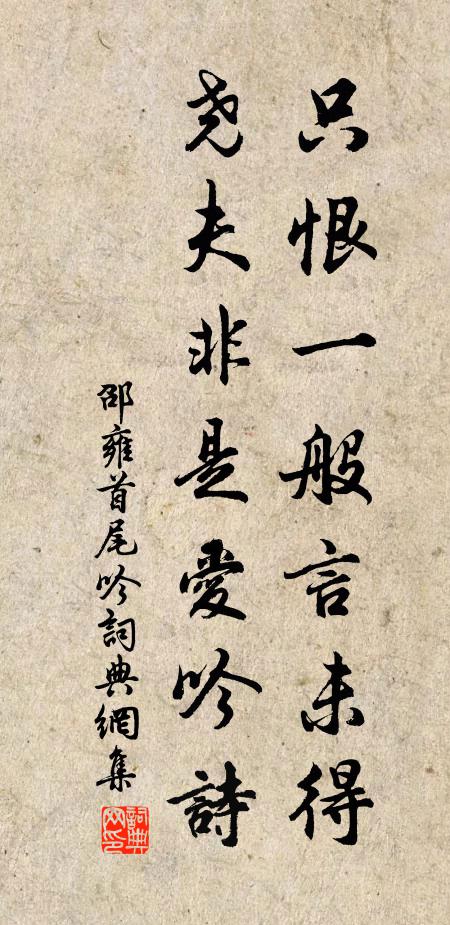 只恨一般言未得
尧夫非是愛吟詩
邵雍首尾吟詞典網集
詞典
网印